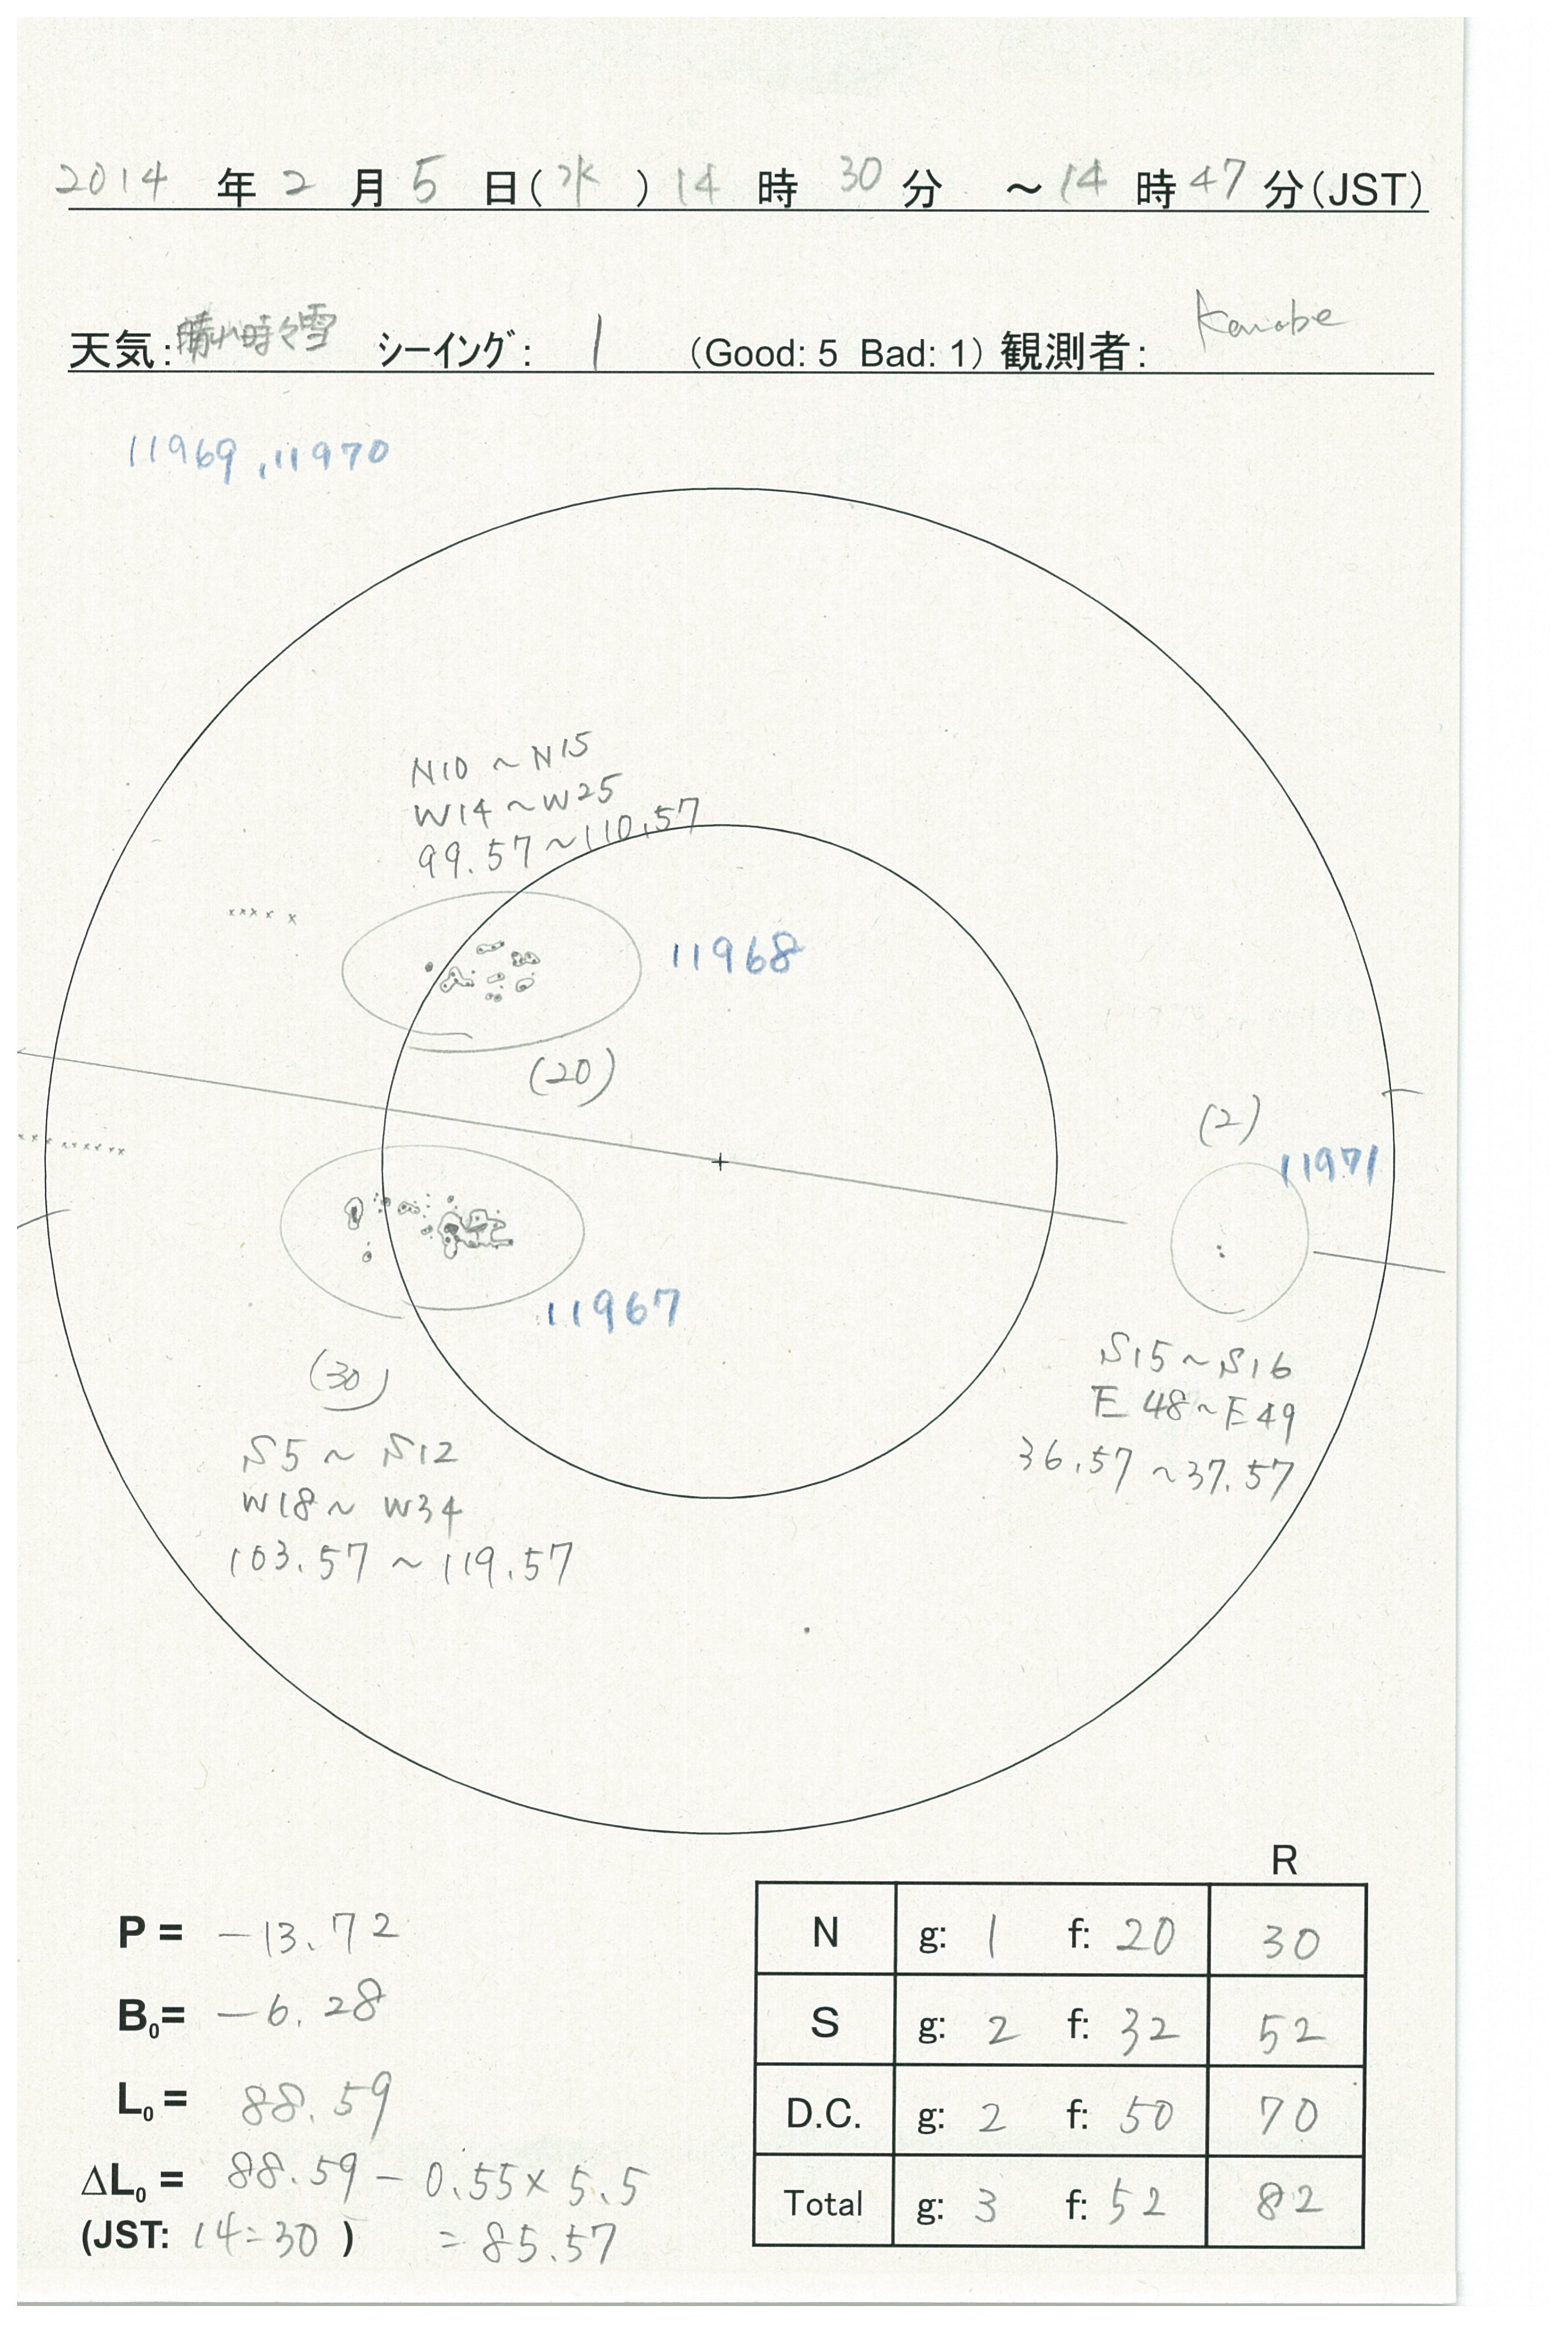 2014 年 2 月 5 日(水) 14 時 30 分 ～14 時 47 分(JST)
天気: 晴れ時々雪 シーイング: 1 (Good: 5 Bad: 1) 観測者: Kanobe
11969, 11970
N10 ~ N15
W14 ~ W25
99.57 ~ 110.57
11968
(20)
(2)
11971
11967
S15 ~ S16
E48 ~ E49
36.57 ~ 37.57
(30)
S5 ~ S12
W18 ~ W34
103.57 ~ 119.57
R
P = -13.72
N g: 1 f: 20 30
B₀= -6.28
S g: 2 f: 32 52
L₀ = 88.59
D.C. g: 2 f: 50 70
ΔL₀ = 88.59 - 0.55 × 5.5
Total g: 3 f: 52 82
(JST: 14:30 ) = 85.57